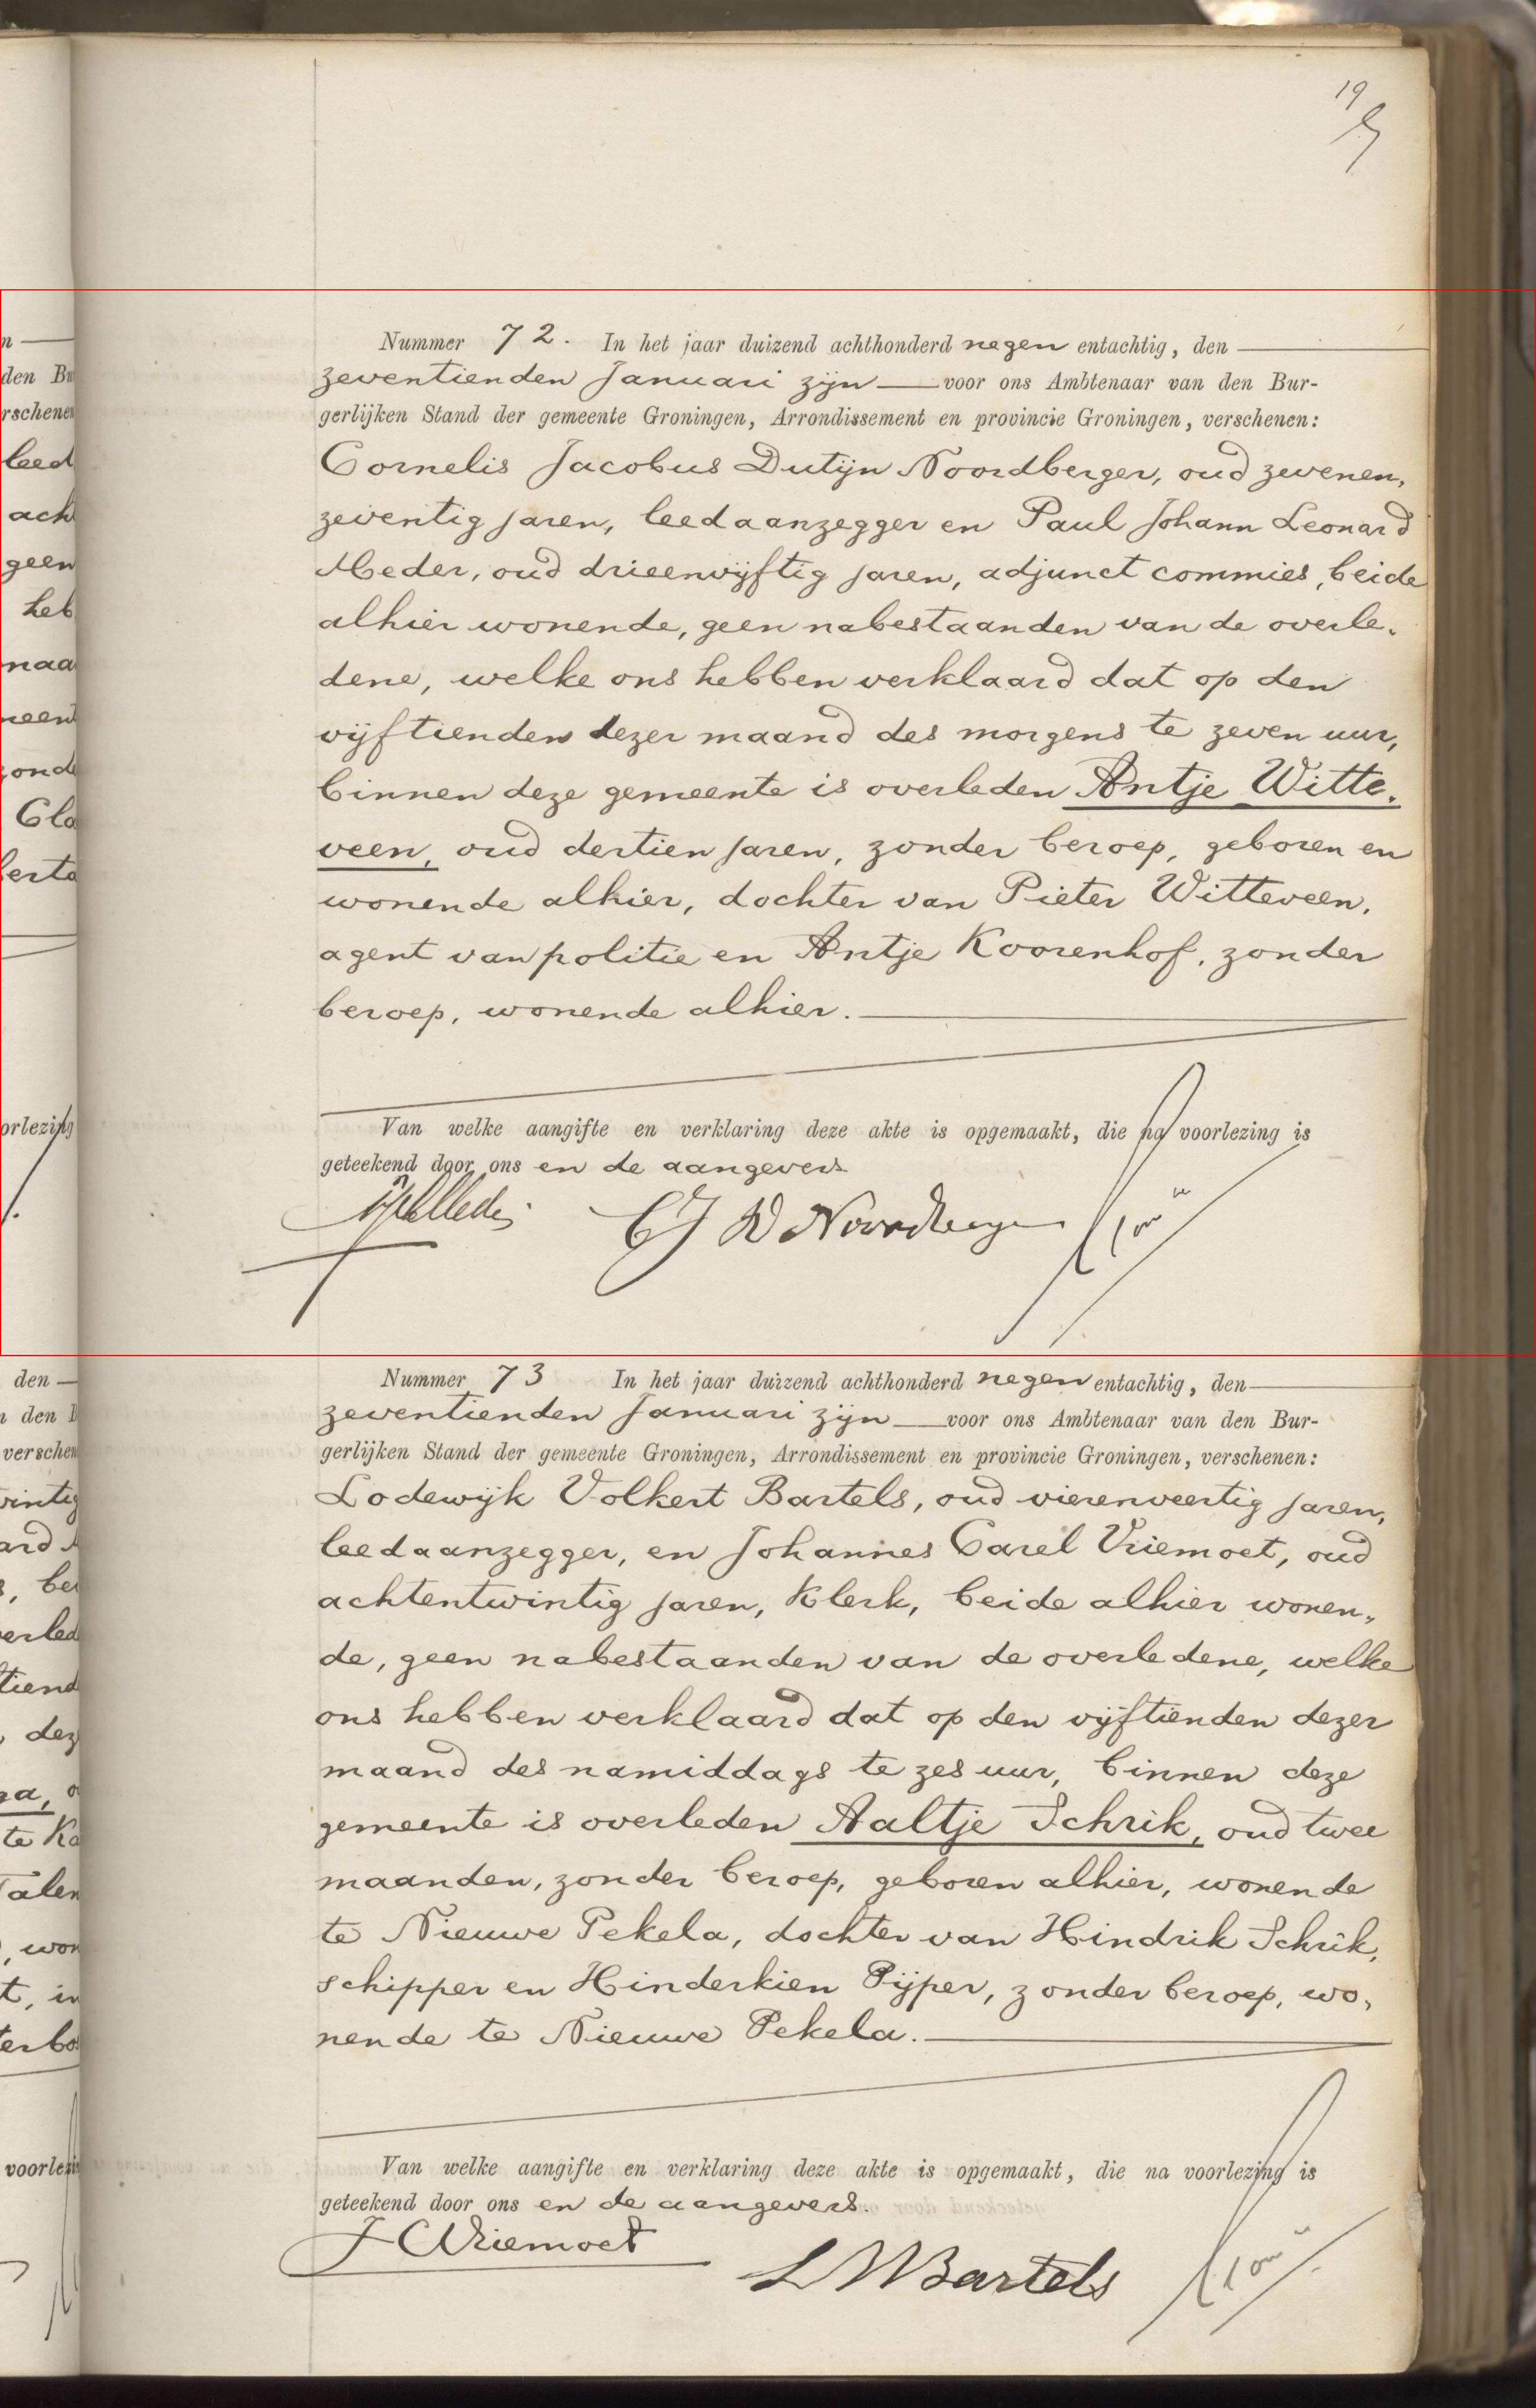 19
Nummer 72. In het jaar duizend achthonderd negen entachtig, den
zeventienden Januari zijn voor ons Ambtenaar van den Bur-
gerlijken Stand der gemeente Groningen, Arrondissement en provincie Groningen, verschenen:
Cornelis Jacobus Dutijn Noordberger, oud zevenen,
zeventig jaren, leedaanzegger en Paul Johann Leonard
Meder, oud drieenvijftig jaren, adjunct commies, beide
alhier wonende, geen nabestaanden van de overle,
dene, welke ons hebben verklaard dat op den
vijftienden dezer maand des morgens te zeven uur,
binnen deze gemeente is overleden Antje Witte,
veen, oud dertien jaren, zonder beroep, geboren en
wonende alhier, dochter van Pieter Witteveen,
agent van politie en Antje Koorenhof, zonder
beroep, wonende alhier.
Van welke aangifte en verklaring deze akte is opgemaakt, die na voorlezing is
geteekend door ons en de aangevers
CJD Noordberger
Nummer 73 In het jaar duizend achthonderd negen entachtig, den
zeventienden Januari zijn voor ons Ambtenaar van den Bur-
gerlijken Stand der gemeente Groningen, Arrondissement en provincie Groningen, verschenen:
Lodewijk Volkert Bartels, oud vierenveertig jaren,
leedaanzegger, en Johannes Carel Vriemoet, oud
achtentwintig jaren, klerk, beide alhier wonen,
de, geen nabestaanden van de overledene, welke
ons hebben verklaard dat op den vijftienden dezer
maand des namiddags te zes uur, binnen deze
gemeente is overleden Aaltje Schrik, oud twee
maanden, zonder beroep, geboren alhier, wonende
te Nieuwe Pekela, dochter van Hindrik Schrik,
schipper en Hinderkien Pijper, zonder beroep, wo,
nende te Nieuwe Pekela.
Van welke aangifte en verklaring deze akte is opgemaakt, die na voorlezing is
geteekend door ons en de aangevers.
J C Vriemoet
L V Bartels